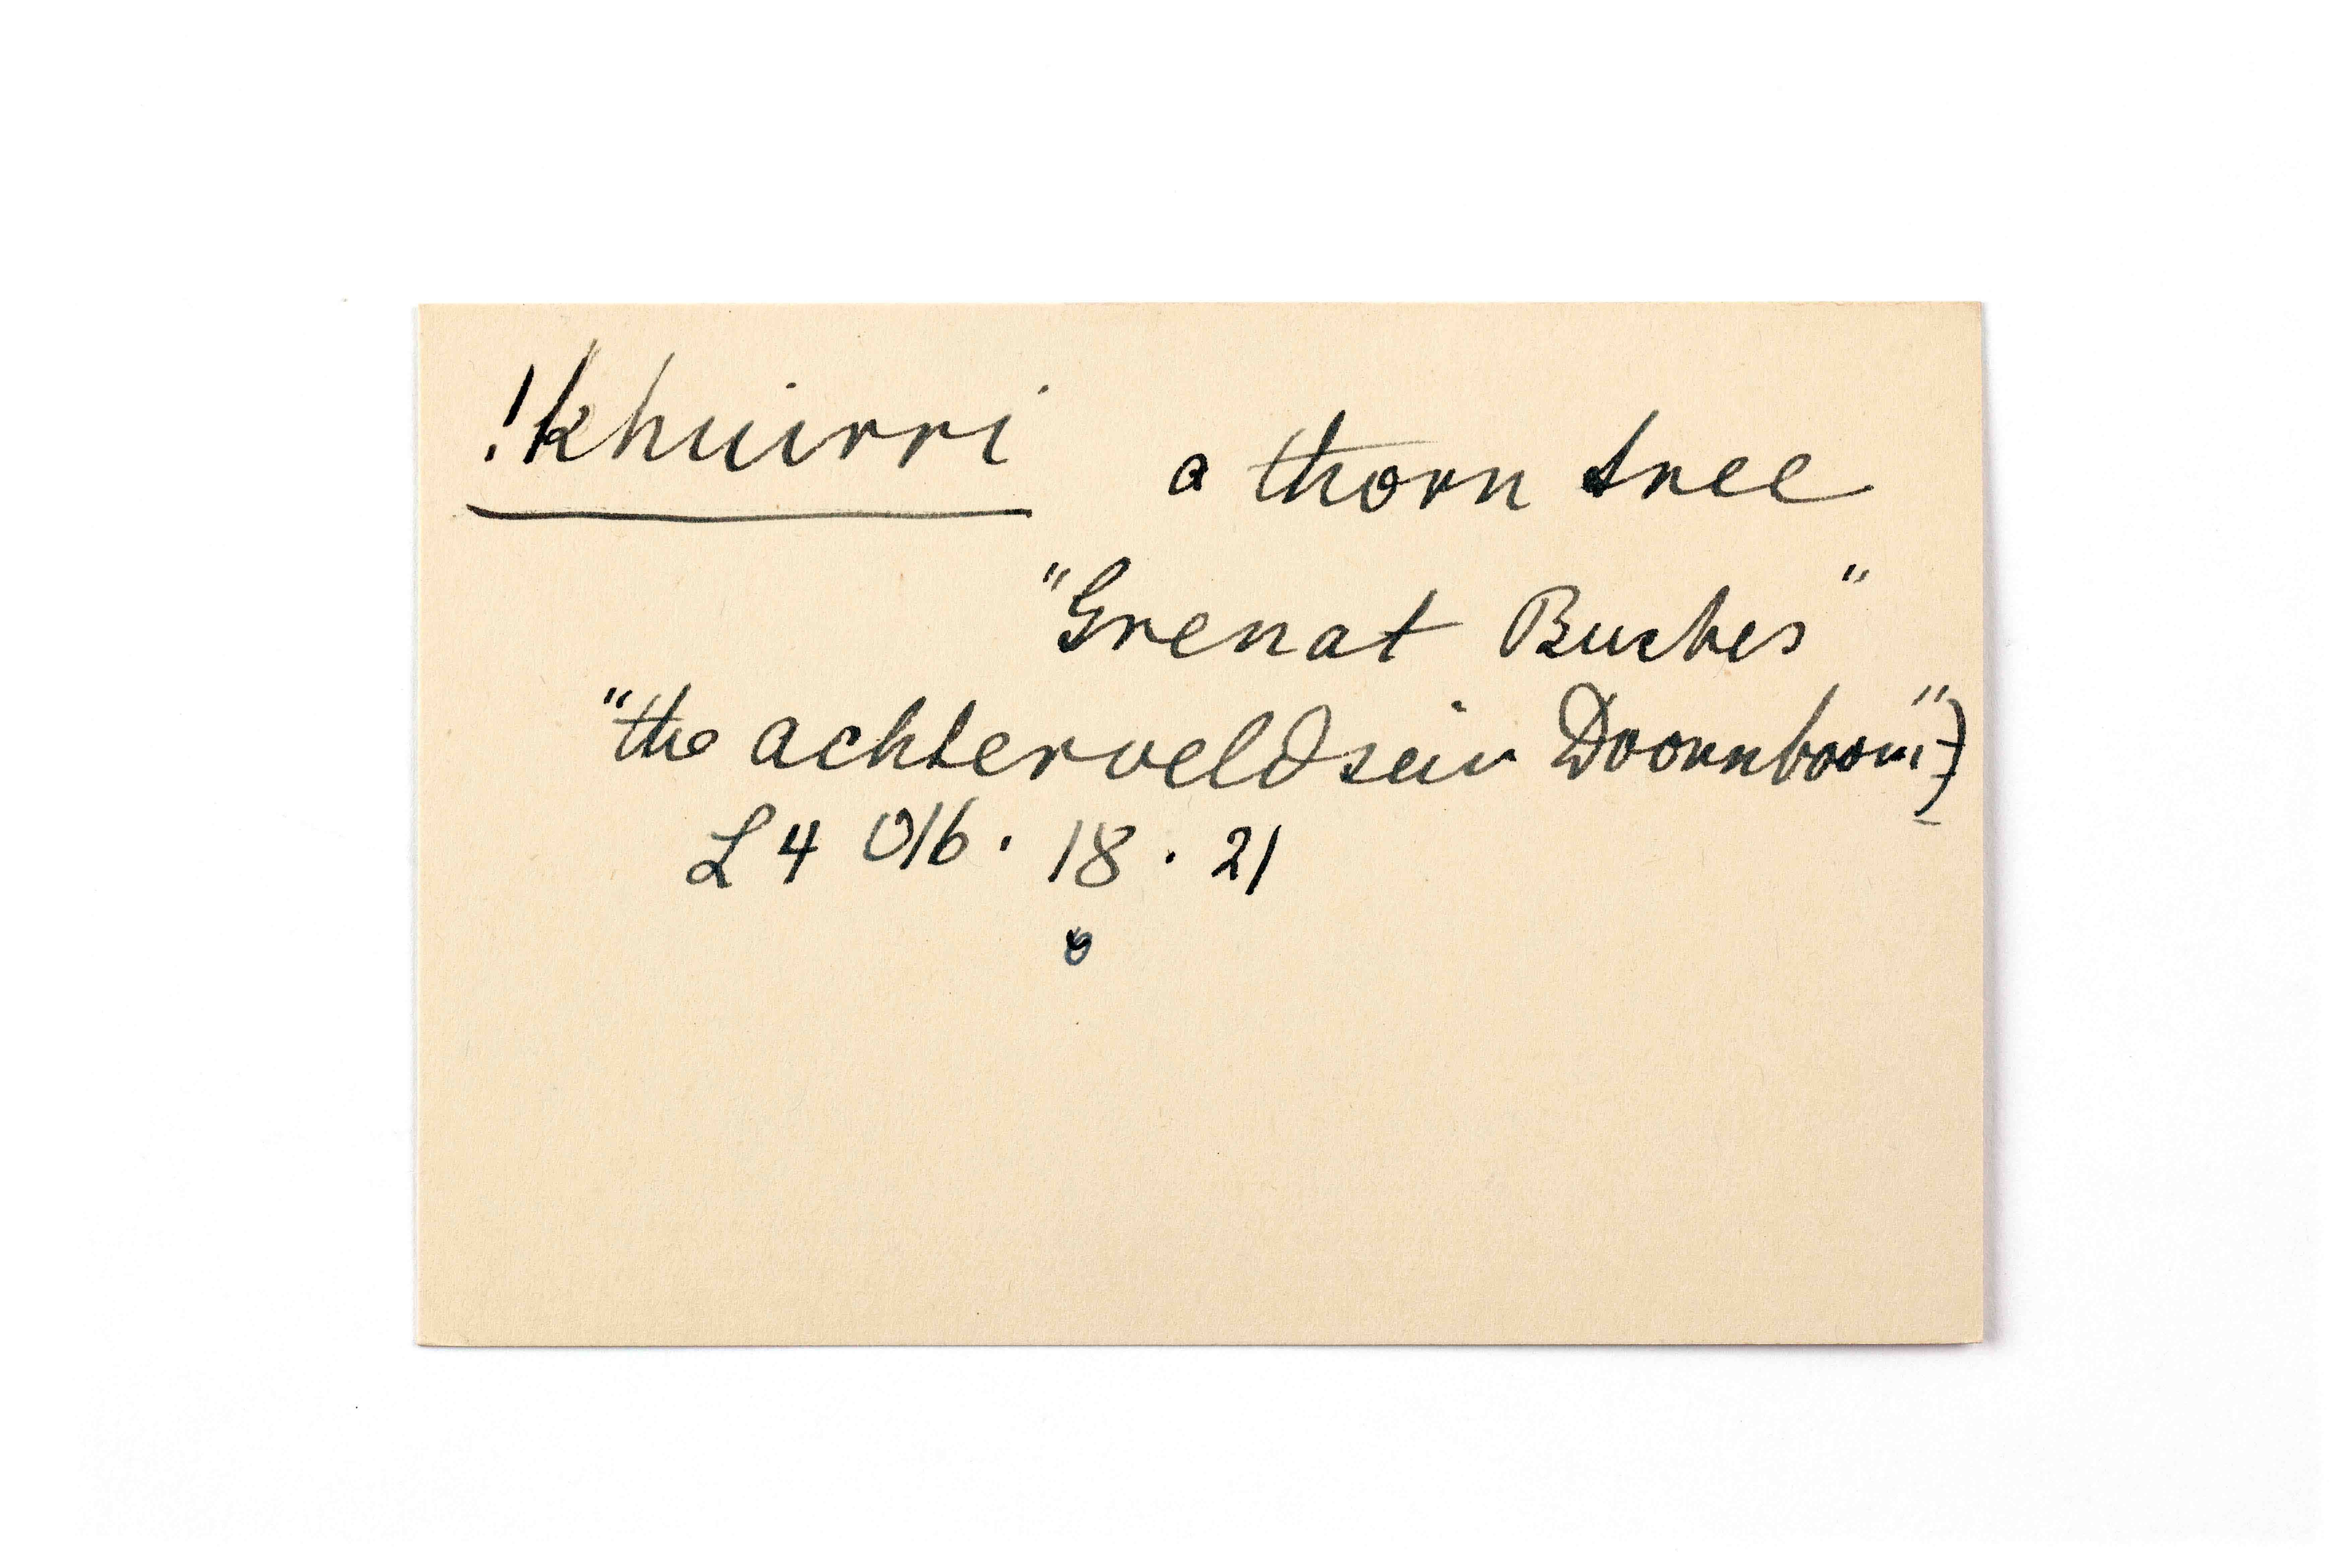 !khuirri a thorn tree
"Grenat Buches"
"the achterveldsein Doornboom")
L 4 016 . 18 . 21